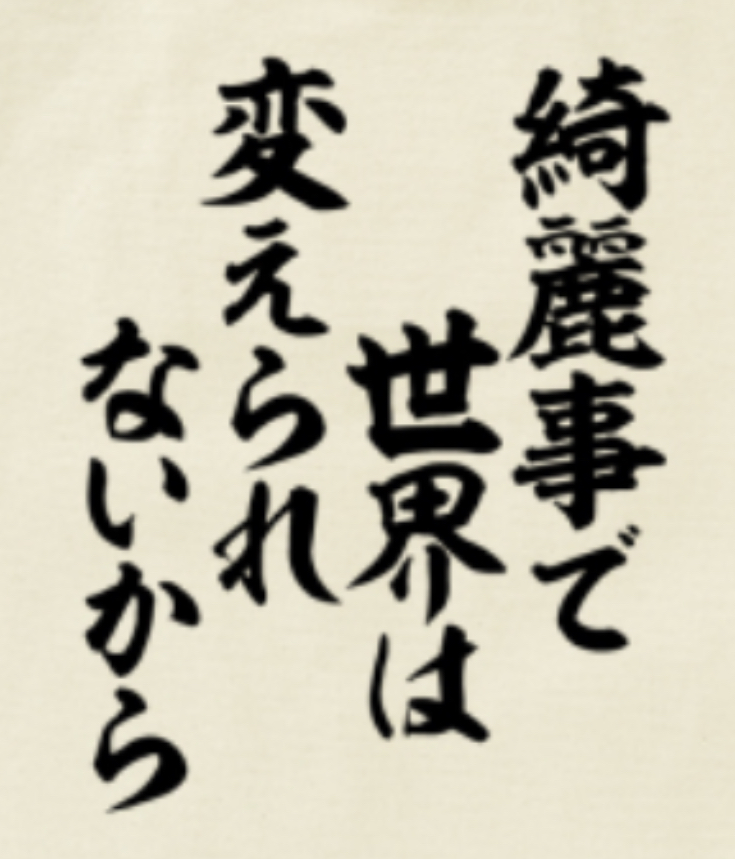 綺麗事で
世界は
変えられ
ないから